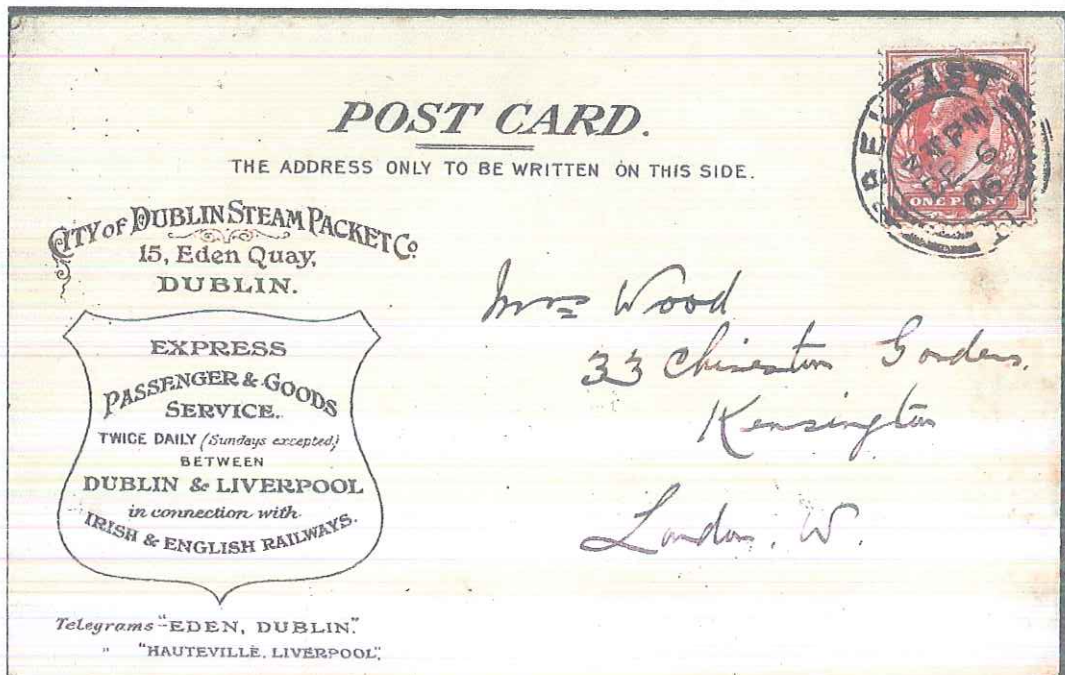 POST CARD.
THE ADDRESS ONLY TO BE WRITTEN ON THIS SIDE.
CITY OF DUBLIN STEAM PACKET Co.
15, Eden Quay,
DUBLIN.
EXPRESS
PASSENGER & GOODS
SERVICE.
TWICE DAILY (Sundays excepted)
BETWEEN
DUBLIN & LIVERPOOL
in connection with
IRISH & ENGLISH RAILWAYS.
Telegrams "EDEN, DUBLIN."
" "HAUTEVILLE, LIVERPOOL",
BELFAST
PM
DE 6
06
ONE PENNY
Mrs Wood
33 Gardens.
Kensington
London. W.